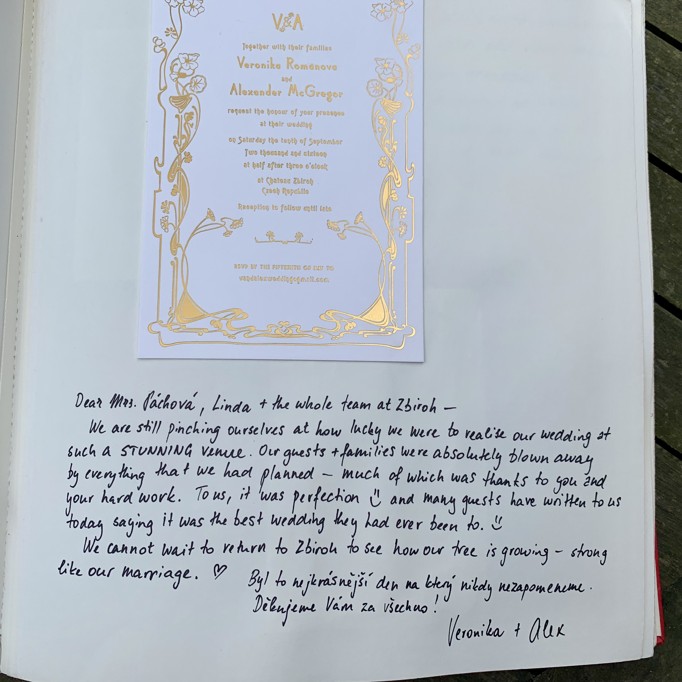 V&A
Together with their families
Veronika Romanova
and
Alexander McGregor
request the honour of your presence
at their wedding
on Saturday the tenth of September
Two thousand and sixteen
at half after three o'clock
at Chateau Zbiroh
Czech Republic
Reception to follow until late
RSVP BY THE FIFTEENTH OF MAY TO:
Dear Mrs. Páchová, Linda + the whole team at Zbiroh —
We are still pinching ourselves at how lucky we were to realise our wedding at
such a STUNNING venue. Our guests + families were absolutely blown away
by everything that we had planned – much of which was thanks to you and
your hard work. To us, it was perfection and many guests have written to us
today saying it was the best wedding they had ever been to.
We cannot wait to return to Zbiroh to see how our tree is growing – strong
like our marriage. ♡ Byl to nejkrásnější den na který nikdy nezapomeneme.
Děkujeme Vám za všechno!
Veronika + Alex